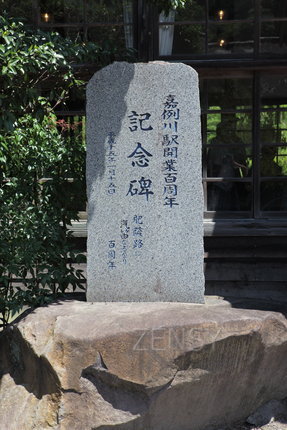 嘉例川駅開業百周年
記念碑
肥薩路
百周年
平成十五年一月十五日
ZENS